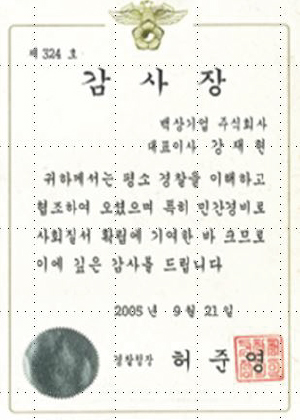 제 324 호
감 사 장
백상기업 주식회사
대표이사 강 재 현
귀하께서는 평소 경찰을 이해하고
협조하여 오셨으며 특히 민간경비로
사회질서 확립에 기여한 바 크므로
이에 깊은 감사를 드립니다
2005 년 9 월 21 일
경찰청장 허 준 영